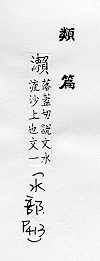 類篇
「瀨 落蓋切說文水
流沙上也文一
(水部,
P.413)